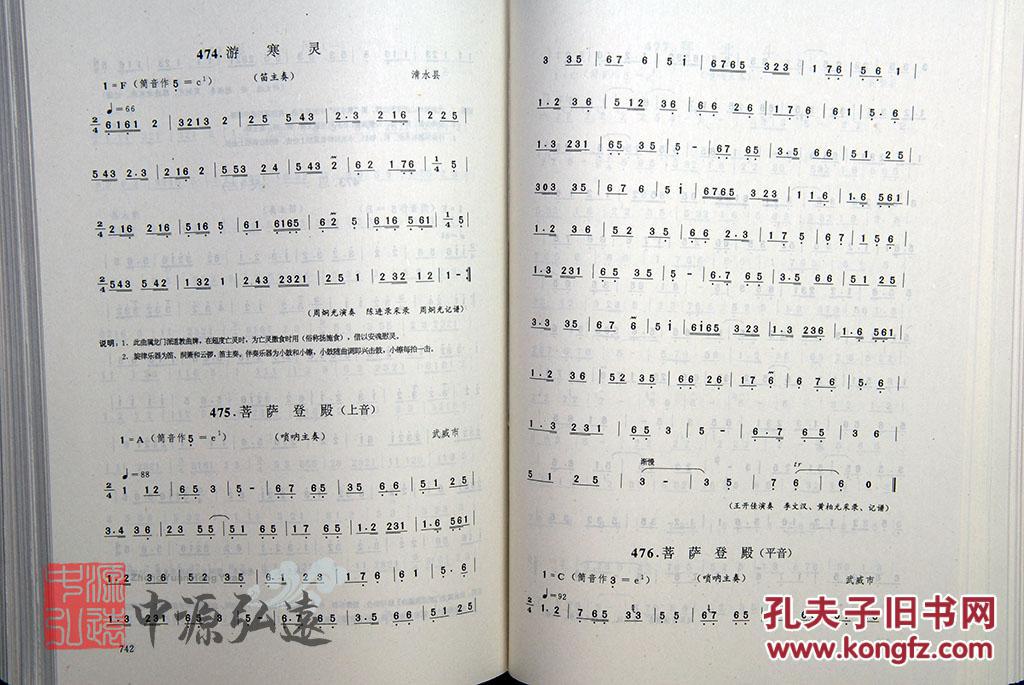 474.游 寒 灵
1=F (筒音作5=c¹) (笛主奏) 清水县
♩=66
2/4 6161 2 | 3213 2 | 25 543 | 2.3 216 | 225 |
543 2.3 | 216 2 | 553 24 | 543 2 | 62 176 | 1/4 5 |
2/4 216 216 | 516 5 | 61 6165 | 62 5 | 616 561 | 1/4 5 |
2/4 543 542 | 243 2321 | 25 1 | 232 12 | 1 - :|
(周炯光演奏 陈进录采录 周炯光记谱)
说明：1. 此曲属龙门派道教曲牌，在超度亡灵时，为亡灵撒食时用（俗称扬施食），借以安魂慰灵。
2. 旋律乐器为笛、铜箫和云锣，笛主奏。伴奏乐器为小鼓和小镲，小鼓随曲调即兴击鼓，小镲每拍一击。
475.菩 萨 登 殿(上音)
1=A (筒音作5=e¹) (唢呐主奏) 武威市
♩=88
2/4 1 12 | 65 3 | 5 35 | 67 65 | 35 66 | 51 25 |
3.4 36 | 23 55 | 51 65 | 67 65 | 1.2 231 | 1.6 561 |
1.2 36 | 52 35 | 6.1 23 | 176 61 | 51 5 |
1.3 231 | 65 3 | 5 - | 67 65 | 3.5 66 | 51 25 |
742
3 35 | 67 6 | 5i | 6765 323 | 176 | 56 1 |
1.2 36 | 512 36 | 66 26 | 176 | 61 | 5.6 |
1.3 231 | 65 35 | 5 - | 67 65 | 3.5 66 | 51 25 |
303 35 | 67 6 | 5i | 6765 323 | 116 | 1.6 561 |
1.2 36 | 52 35 | 66 2.3 | 175 67 | 156 |
1.3 231 | 65 35 | 5 - | 6.7 65 | 3.5 66 | 51 25 |
3.3 35 | 67 6 | 5i | 6i65 323 | 116 | 1.6 561 |
1.2 36 | 52 35 | 66 26 | 17 6 | 6 76 | 5.6 |
1.3 231 | 65 3 | 5 - | 6.7 65 | 3 36 |
渐慢 tr
51 25 | 3 - | 35 | 76 | 60 ‖
(王开佳演奏 李文汉、黄柏元采录、记谱)
476.菩 萨 登 殿(平音)
1=C (筒音作3=e¹) (唢呐主奏) 武威市
♩=92
中源弘遠
孔夫子旧书网
www.kongfz.com